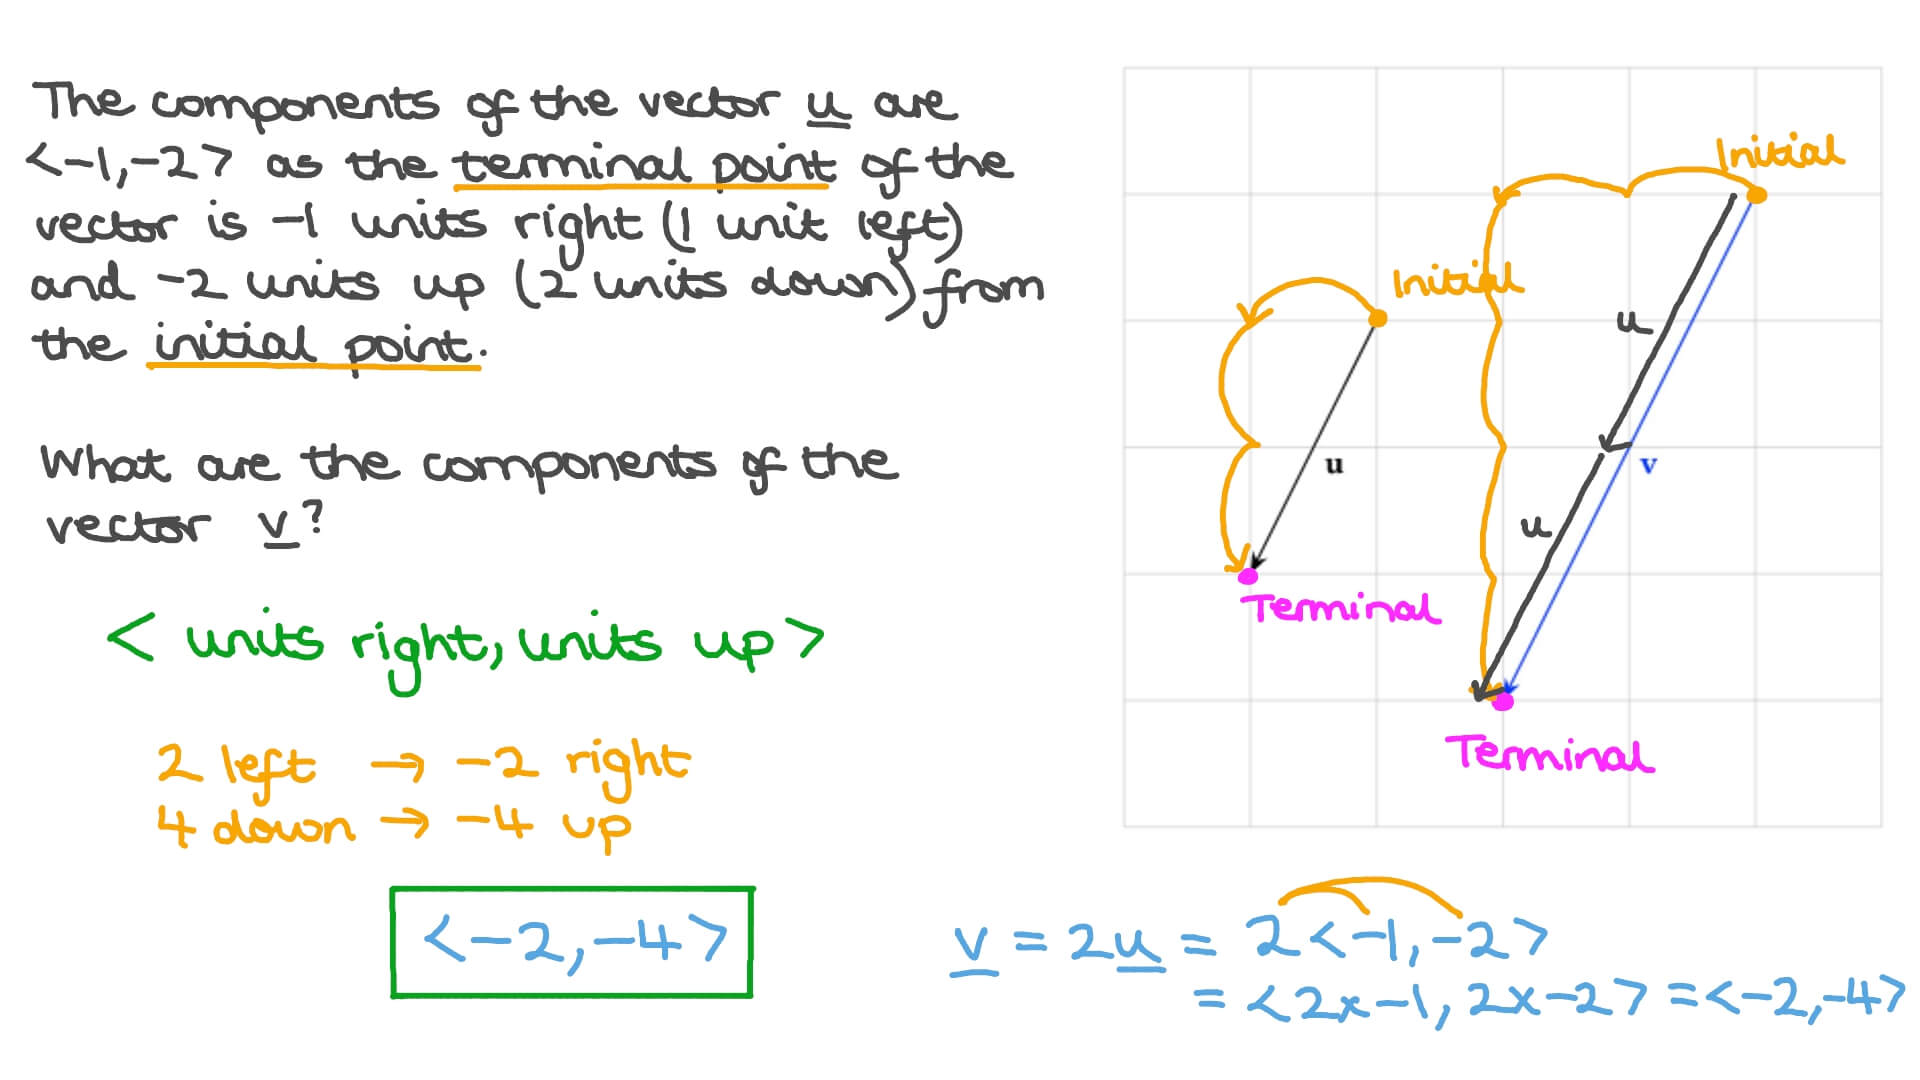 The components of the vector u are
<-1,-2> as the terminal point of the
vector is -1 units right (1 unit left)
and -2 units up (2 units down) from
the initial point.
What are the components of the
vector v?
< units right, units up >
2 left → -2 right
4 down → -4 up
<-2,-4>
Initial
Initial
u
u
v
u
Terminal
Terminal
v = 2u = 2<-1,-2>
= <2x-1, 2x-2> = <-2,-4>